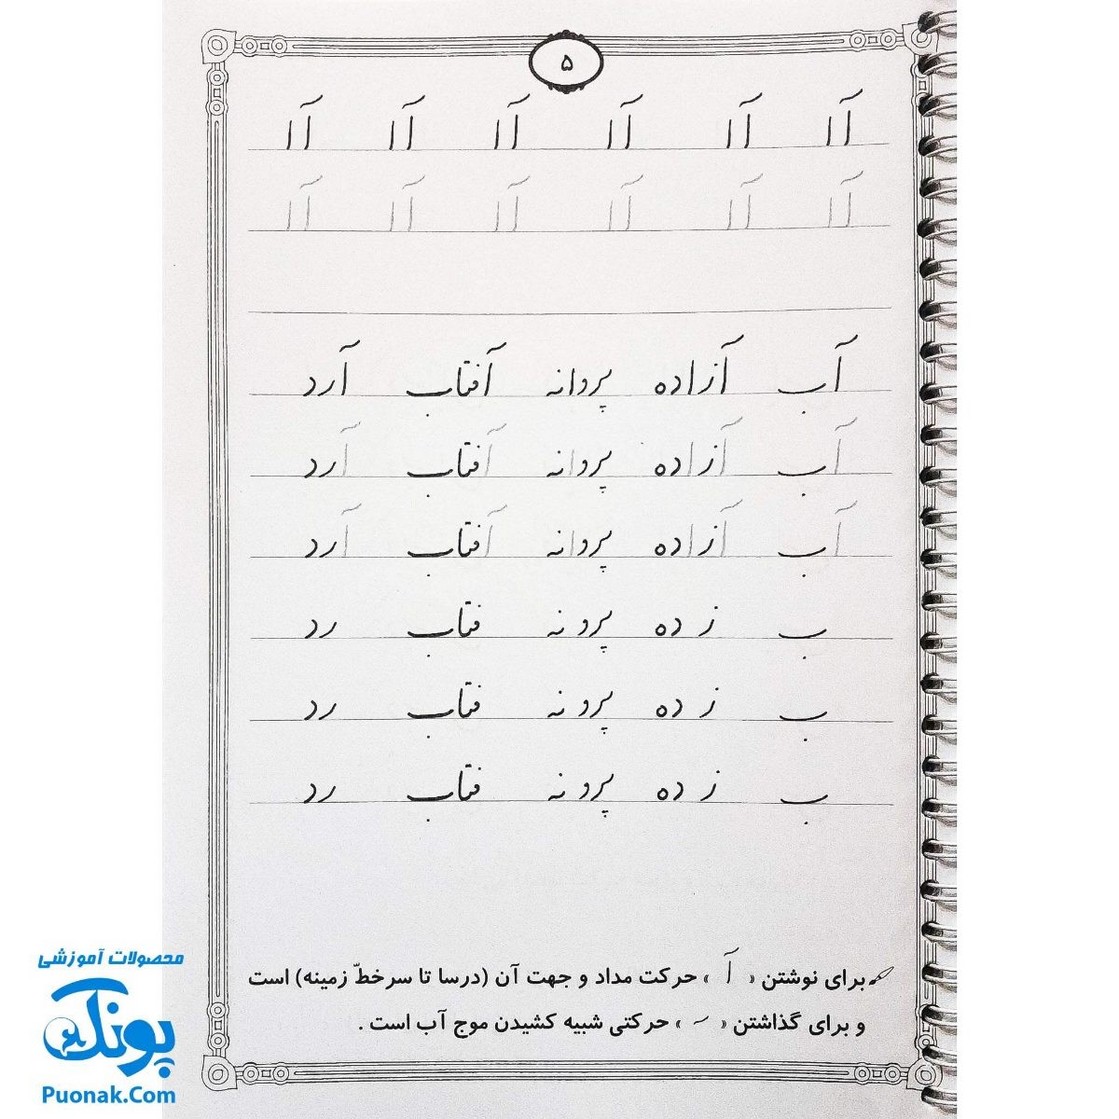 ۵
آ ا آ ا آ ا آ ا آ ا آ ا
آ ا آ ا آ ا آ ا آ ا آ ا
آب آزاده پروانه آفتاب آرد
آب آزاده پروانه آفتاب آرد
آب آزاده پروانه آفتاب آرد
ب ز ده پرو نه فتاب رد
ب ز ده پرو نه فتاب رد
ب ز ده پرو نه فتاب رد
برای نوشتن « آ » حرکت مداد و جهت آن (درسا تا سرخطّ زمینه) است
و برای گذاشتن « ~ » حرکتی شبیه کشیدن موج آب است .
محصولات آموزشی
پونک
Puonak.Com